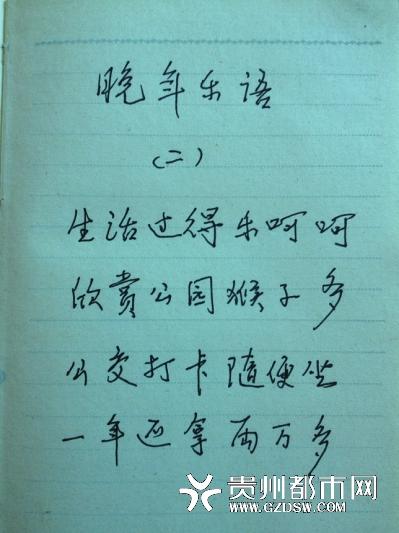 晚年乐语
(二)
生活过得乐呵呵
欣赏公园猴子多
公交打卡随便坐
一年还拿两万多
贵州都市网
WWW.GZDSW.COM